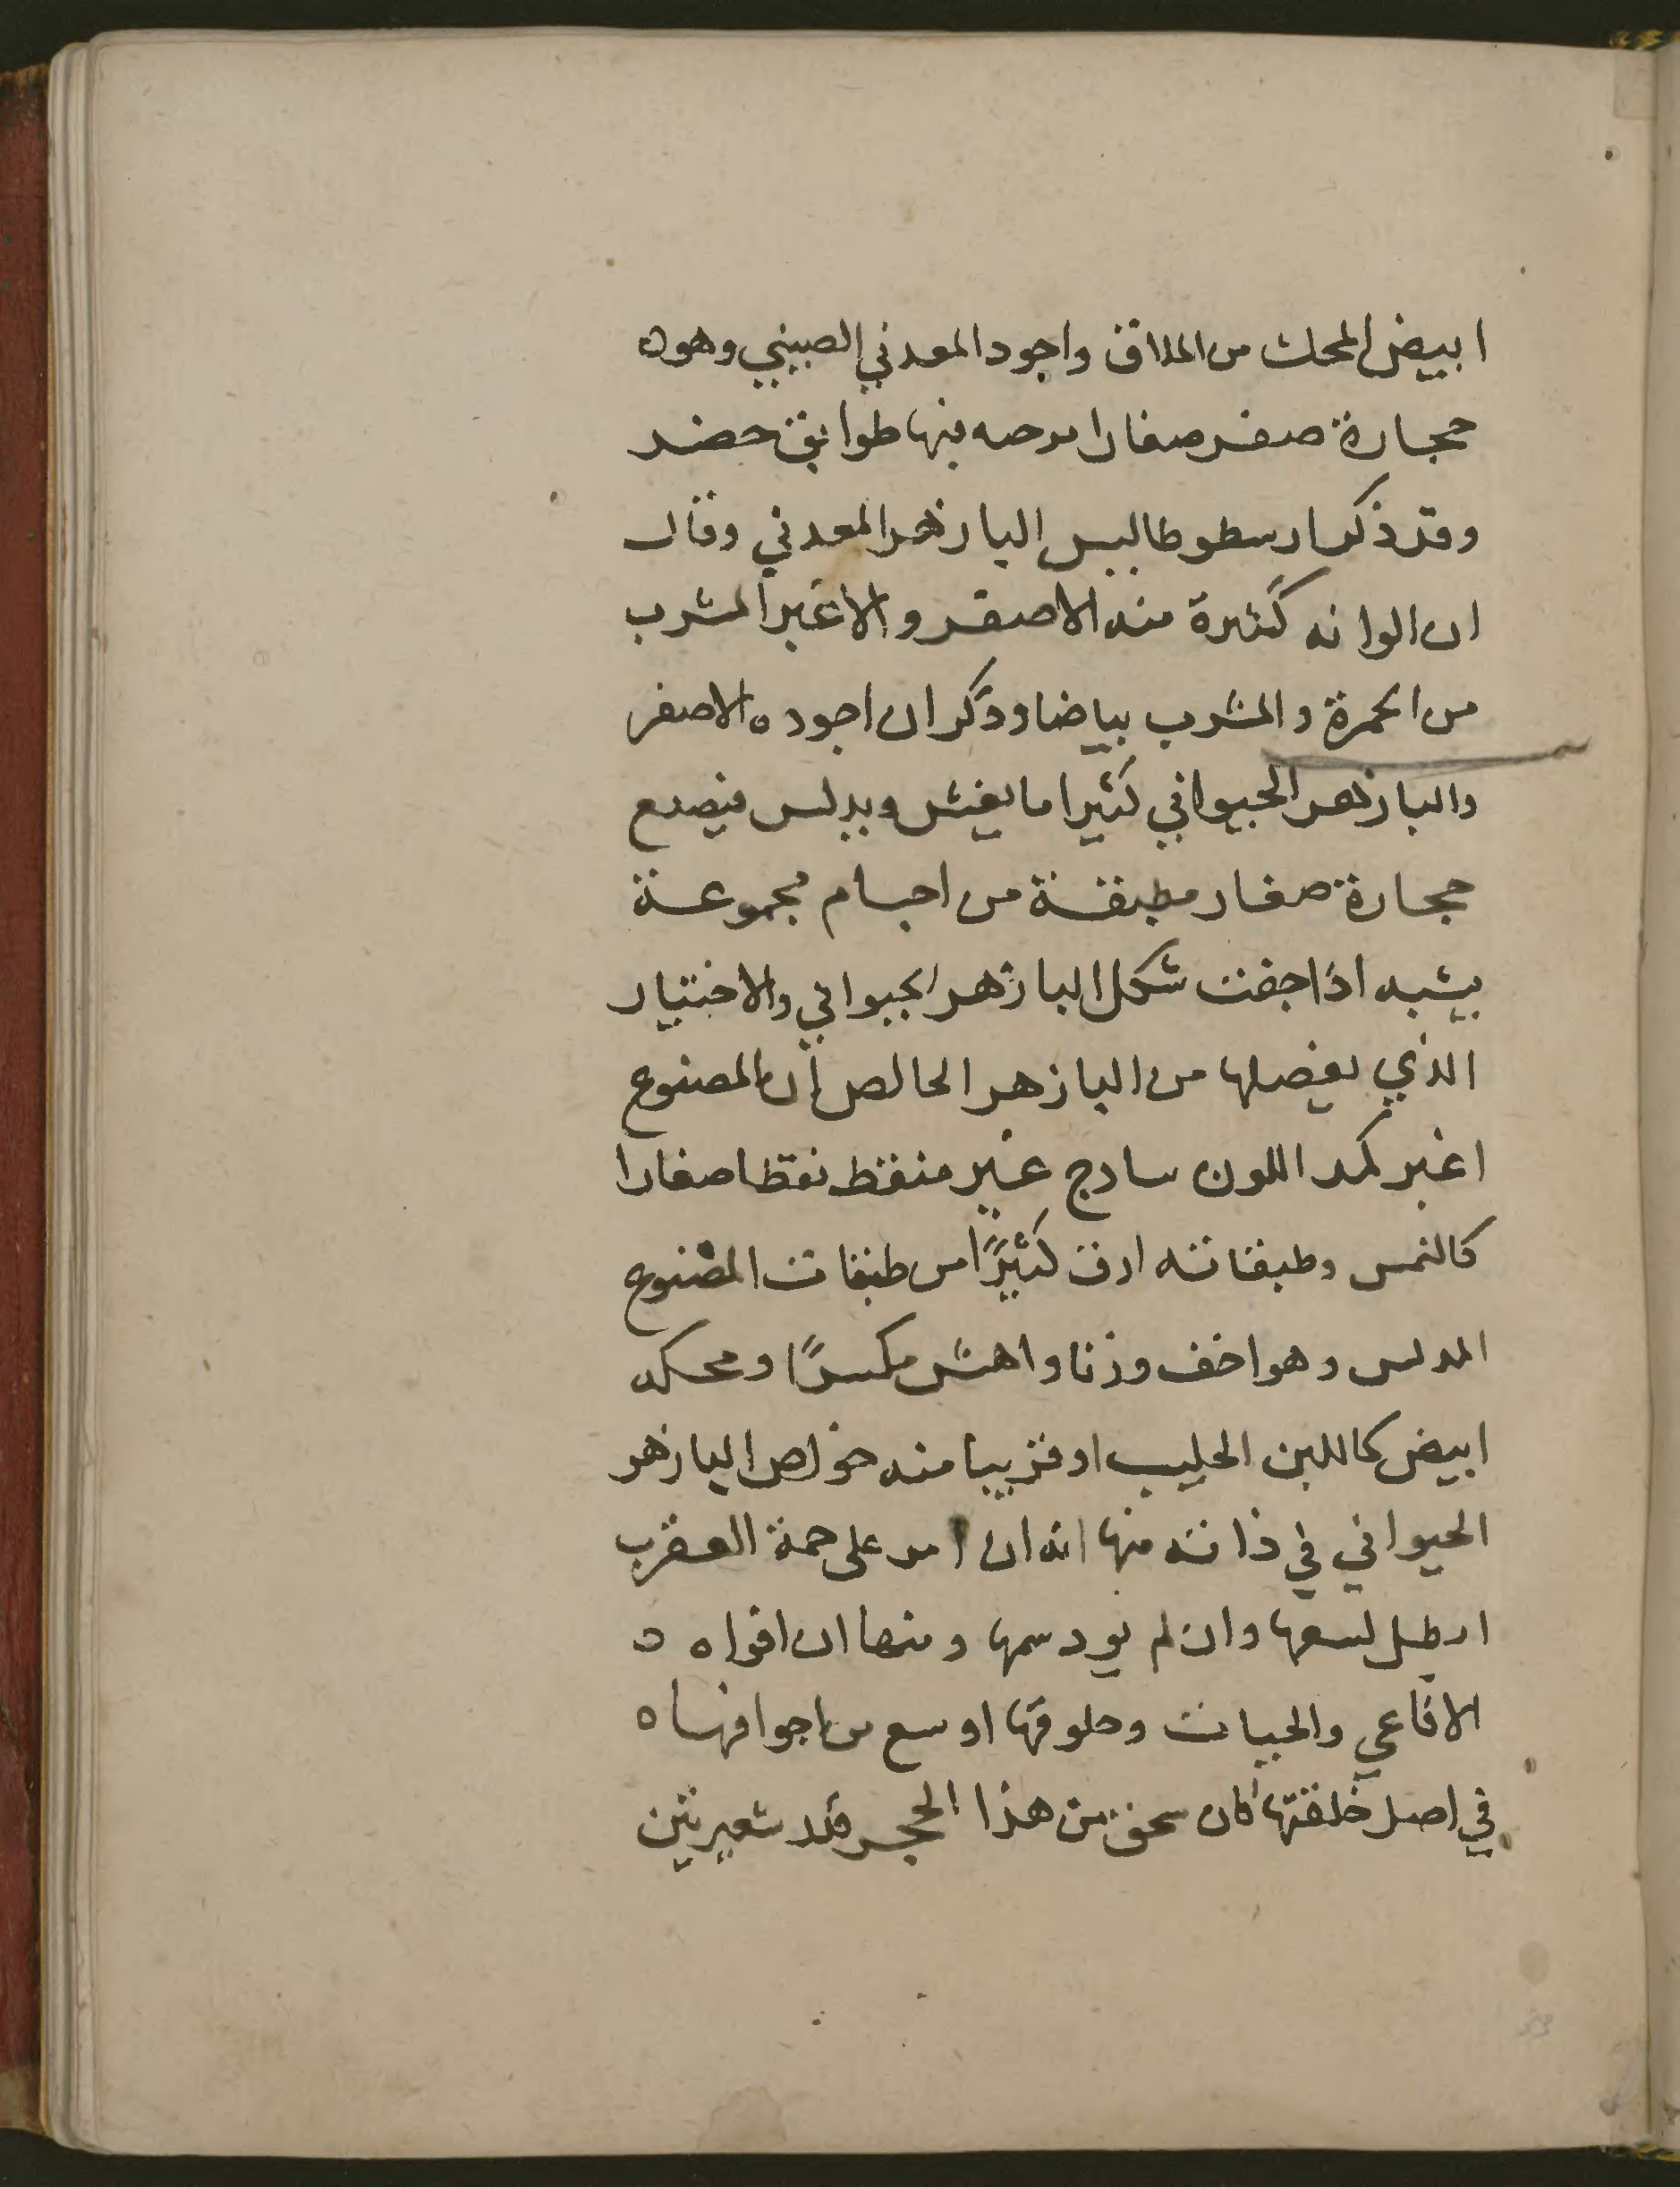 ابيض المحك من المذاق واجود المعدني الصيني وهو ه
حجارة صفر صغار ا مرحه فيها طوابق خضر
وقد ذكر ارسطوطاليس البازهر المعدني وقال
ان الوانه كثيرة منه الاصفر والاغبر المشرب
من الحمرة والمشرب بياضا وذكر ان اجوده الاصفر
والبازهر الحيواني كثيرا ما يغش ويدلس فيصنع
حجارة صغار مطبقة من اجسام مجموعة
يشبه اذا جفت شكل البازهر الحيواني والاختبار
الذي يفصلها من البازهر الخالص ان المصنوع
اغبر كمد اللون سادج غير منقط نقطا صغارا
كالنمس وطبقاته ارق كثيرًا من طبقات المصنوع
المدلس وهو اخف وزنا واهش مكسرًا ومحكه
ابيض كاللبن الحليب او قريبا منه خواص البازهر
الحيواني في ذاته منها انه ان امر على حمة العقرب
ابطل لسعها وان لم يود سمها ومنها ان افواه ه
الافاعي والحيات وحلوقها اوسع من اجوافها ه
في اصل خلقتها فان سحق من هذا الحجر قدر شعيرتين